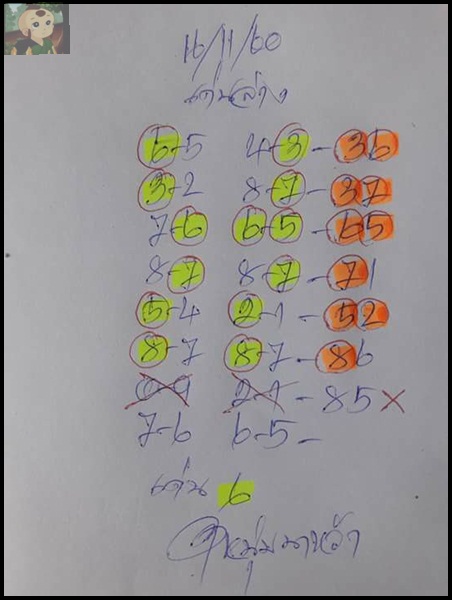 16/11/60
เด่นล่าง
6-5 4-3-36
3-2 8-7-37
7-6 6-5-65
8-7 8-7-71
5-4 2-1-52
8-7 8-7-86
2-1-85 ×
7-6 6-5-
เด่น 6